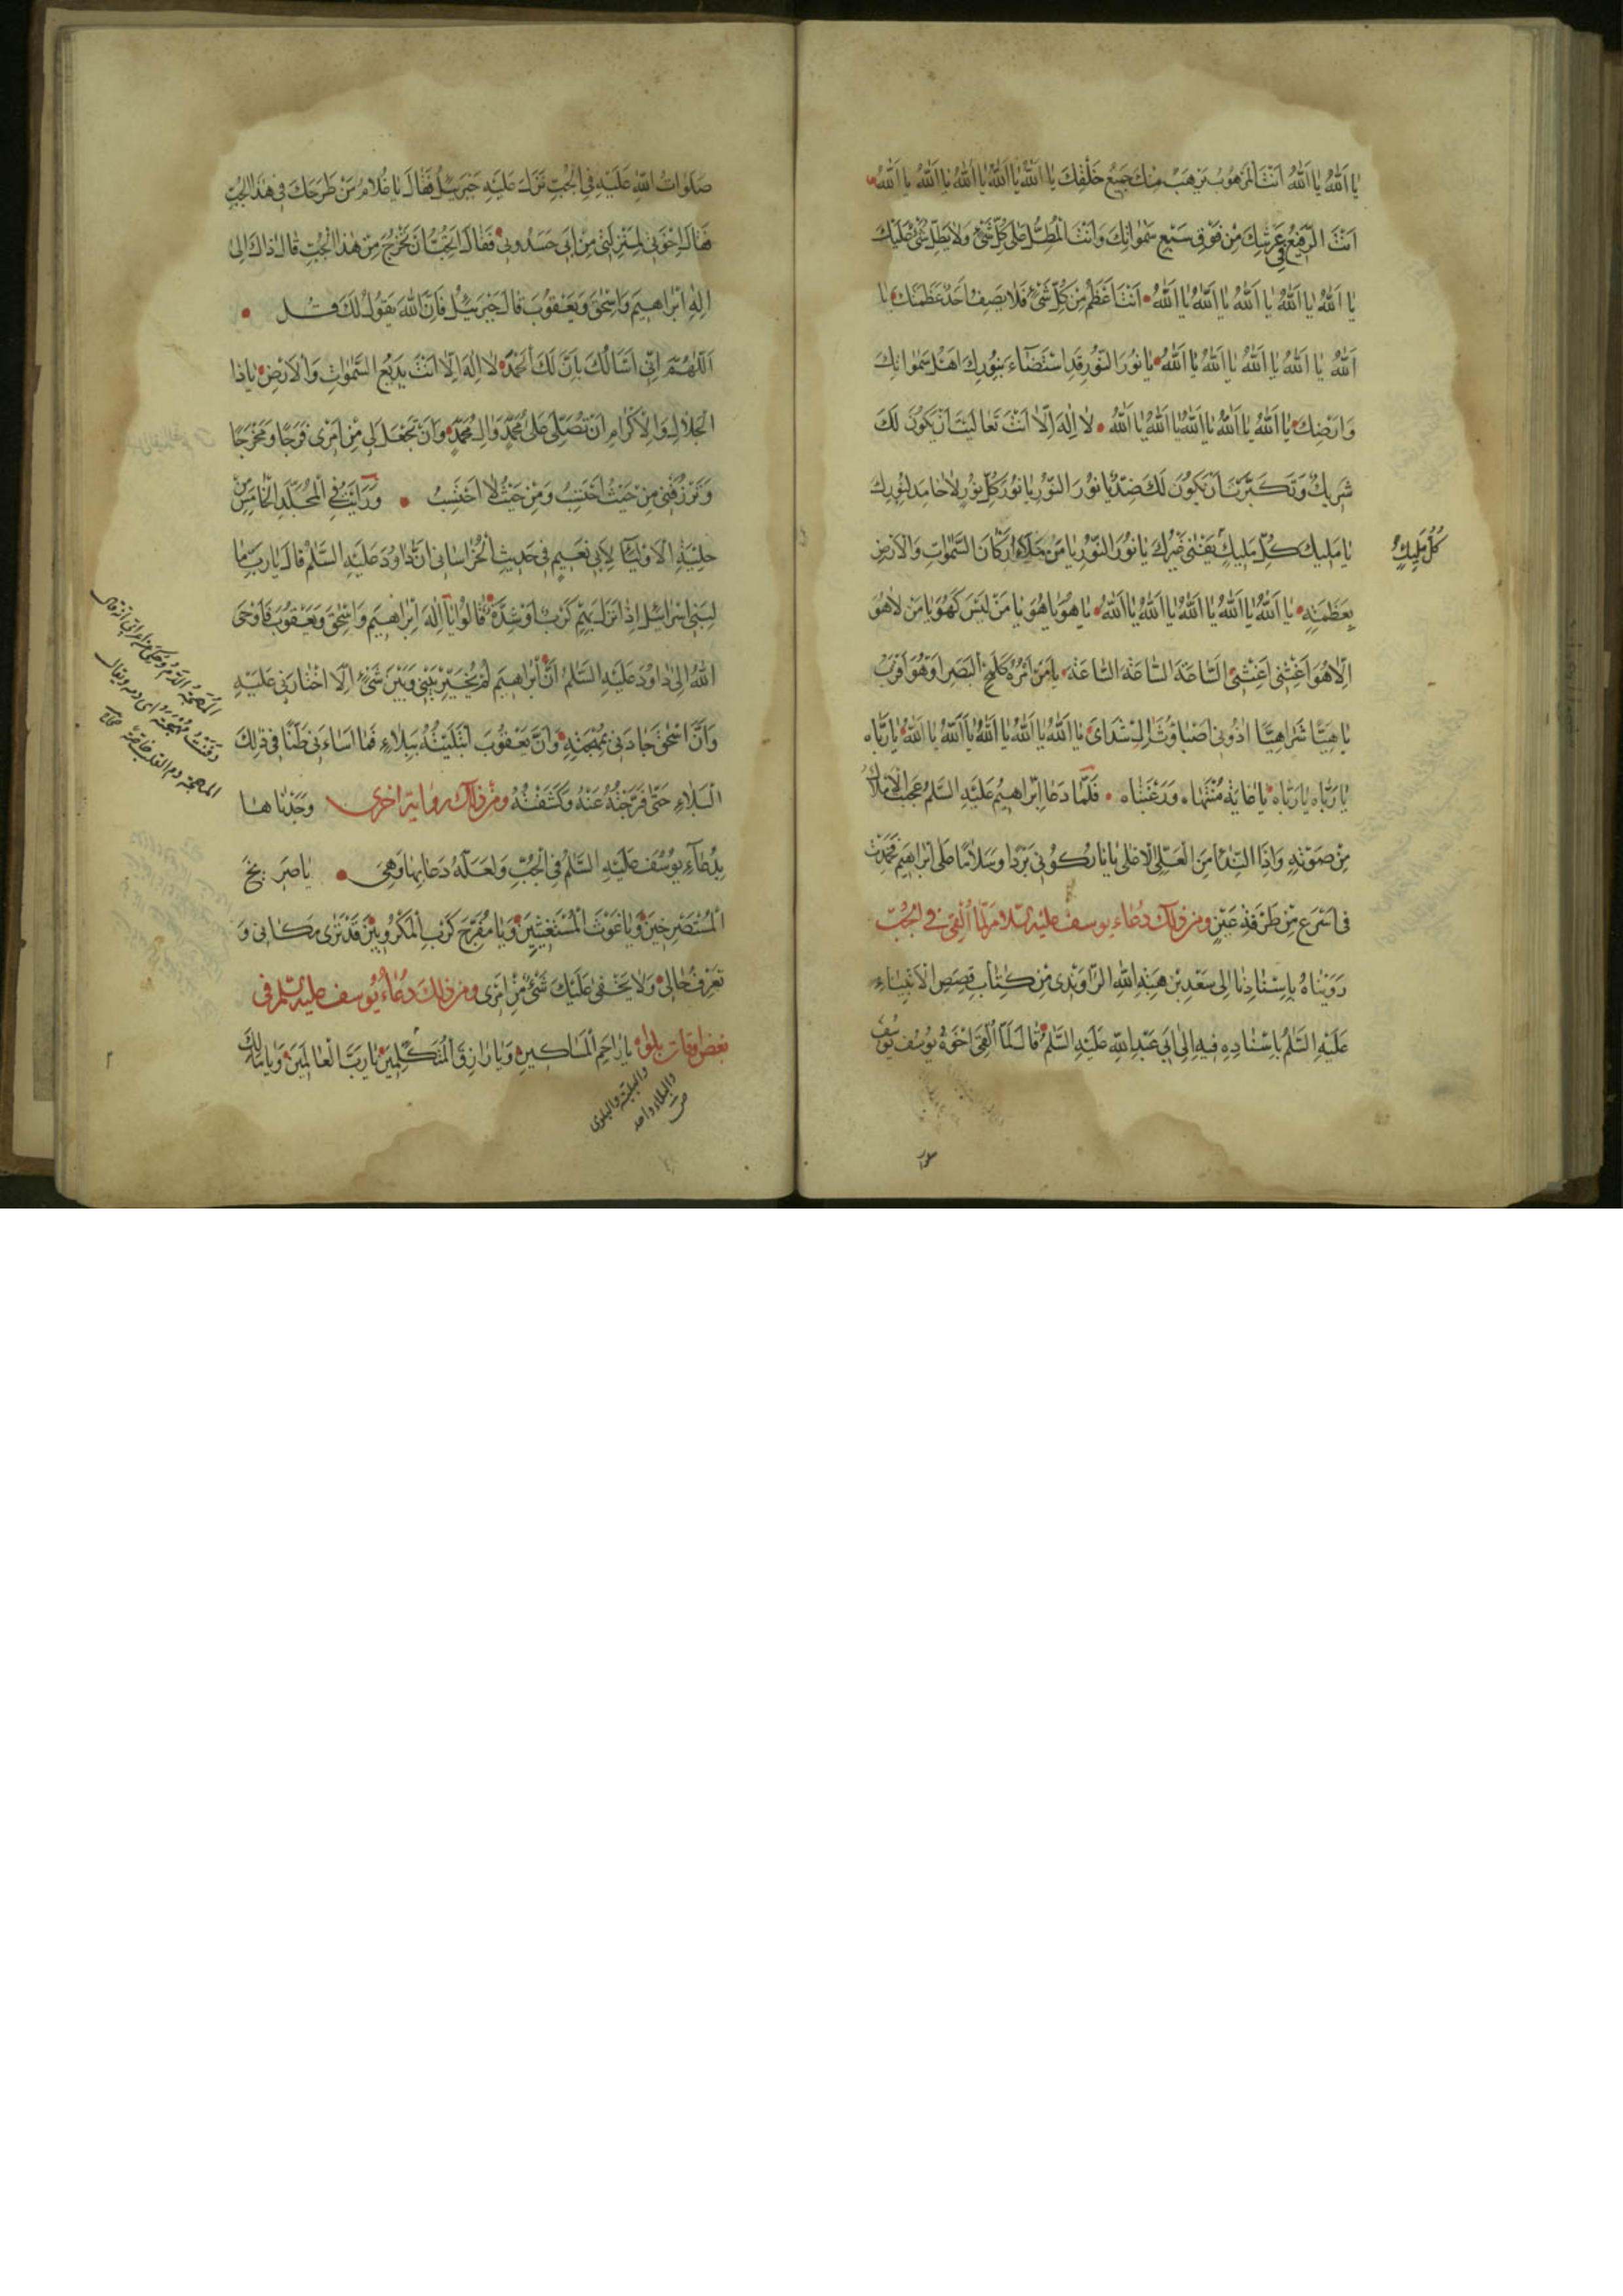 يَا اَللّٰهُ يَا اَللّٰهُ اَنْتَ الْمَرْهُوبُ يَرْهَبُ مِنْكَ جَمِيعُ خَلْقِكَ يَا اَللّٰهُ يَا اَللّٰهُ يَا اَللّٰهُ يَا اَللّٰهُ يَا اَللّٰهُ
اَنْتَ الرَّفِيعُ فِي عَرْشِكَ مِنْ فَوْقِ سَبْعِ سَمٰوَاتِكَ وَاَنْتَ الْمُظِلُّ عَلٰى كُلِّ شَيْءٍ وَلَا يُظِلُّ شَيْءٌ عَلَيْكَ
يَا اَللّٰهُ يَا اَللّٰهُ يَا اَللّٰهُ يَا اَللّٰهُ يَا اَللّٰهُ اَنْتَ اَعْظَمُ مِنْ كُلِّ شَيْءٍ فَلَا يَصِفُ اَحَدٌ عَظَمَتَكَ يَا
اَللّٰهُ يَا اَللّٰهُ يَا اَللّٰهُ يَا اَللّٰهُ يَا اَللّٰهُ يَا نُورَ النُّورِ قَدِ اسْتَضَاءَ بِنُورِكَ اَهْلُ سَمٰوَاتِكَ
وَاَرْضِكَ يَا اَللّٰهُ يَا اَللّٰهُ يَا اَللّٰهُ يَا اَللّٰهُ يَا اَللّٰهُ لَا اِلٰهَ اِلَّا اَنْتَ تَعَالَيْتَ اَنْ يَكُونَ لَكَ
شَرِيكٌ وَتَكَبَّرْتَ اَنْ يَكُونَ لَكَ ضِدٌّ يَا نُورَ النُّورِ يَا نُورَ كُلِّ نُورٍ لَا خَامِدَ لِنُورِكَ
يَا مَلِيكَ كُلِّ مَلِيكٍ يَفْنٰى غَيْرُكَ يَا نُورَ النُّورِ يَا مَنْ مَلَأَ اَرْكَانَ السَّمٰوَاتِ وَالْاَرْضِ
كُلُّ مَلِيكٍ
بِعَظَمَتِهِ يَا اَللّٰهُ يَا اَللّٰهُ يَا اَللّٰهُ يَا اَللّٰهُ يَا اَللّٰهُ يَا هُوَ يَا هُوَ يَا مَنْ لَيْسَ كَهُوَ يَا مَنْ لَا هُوَ
اِلَّا هُوَ اَغِثْنِي اَغِثْنِي السَّاعَةَ السَّاعَةَ السَّاعَةَ يَا مَنْ اَمْرُهُ كَلَمْحِ الْبَصَرِ اَوْ هُوَ اَقْرَبُ
يَا هِيًّا شَرَاهِيًّا اَذُونِي اَصْبَاوُثَ يَا اَللّٰهُ يَا اَللّٰهُ يَا اَللّٰهُ يَا اَللّٰهُ يَا اَللّٰهُ يَا رَبَّاهُ
يَا رَبَّاهُ يَا رَبَّاهُ يَا غَايَةَ مُنْتَهَاهُ وَرَغْبَتَاهُ فَلَمَّا دَعَا اِبْرَاهِيمُ عَلَيْهِ السَّلَمُ عَجَّتِ الْاَمْلَاكُ
مِنْ صَوْتِهِ وَاِذَا النِّدَاءُ مِنَ الْعَلِيِّ الْاَعْلٰى يَا نَارُ كُونِي بَرْدًا وَسَلَامًا عَلٰى اِبْرَاهِيمَ فَخَمَدَتْ
فِي اَسْرَعِ مِنْ طَرْفَةِ عَيْنٍ وَمِنْ ذٰلِكَ دُعَاءُ يُوسُفَ عَلَيْهِ السَّلَامُ لَمَّا اُلْقِيَ فِي الْجُبِّ
رَوَيْنَاهُ بِاِسْنَادِنَا اِلٰى سَعْدِ بْنِ هِبَةِ اللّٰهِ الرَّاوَنْدِي مِنْ كِتَابِ قِصَصِ الْاَنْبِيَاءِ
عَلَيْهِ السَّلَمُ بِاِسْنَادِهِ فِيهِ اِلٰى اَبِي عَبْدِ اللّٰهِ عَلَيْهِ السَّلَمُ قَالَ لَمَّا اَلْقٰى اِخْوَةُ يُوسُفَ يُوسُفَ
صلوات
صَلَوَاتُ اللّٰهِ عَلَيْهِ فِي الْجُبِّ نَزَلَ عَلَيْهِ جَبْرَئِيلُ فَقَالَ يَا غُلَامُ مَنْ طَرَحَكَ فِي هٰذَا الْجُبِّ
فَقَالَ اِخْوَتِي لِمَنْزِلَتِي مِنْ اَبِي حَسَدُونِي فَقَالَ اَتُحِبُّ اَنْ تَخْرُجَ مِنْ هٰذَا الْجُبِّ قَالَ ذَاكَ اِلٰى
اِلٰهِ اِبْرَاهِيمَ وَاِسْحٰقَ وَيَعْقُوبَ قَالَ جَبْرَئِيلُ فَاِنَّ اللّٰهَ يَقُولُ لَكَ قُلْ
اَللّٰهُمَّ اِنِّي اَسْأَلُكَ بِاَنَّ لَكَ الْحَمْدَ لَا اِلٰهَ اِلَّا اَنْتَ بَدِيعُ السَّمٰوَاتِ وَالْاَرْضِ يَا ذَا
الْجَلَالِ وَالْاِكْرَامِ اَنْ تُصَلِّيَ عَلٰى مُحَمَّدٍ وَاٰلِ مُحَمَّدٍ وَاَنْ تَجْعَلَ لِي مِنْ اَمْرِي فَرَجًا وَمَخْرَجًا
وَتَرْزُقَنِي مِنْ حَيْثُ اَحْتَسِبُ وَمِنْ حَيْثُ لَا اَحْتَسِبُ وَرَاَيْتُ فِي الْمُجَلَّدِ الْخَامِسِ مِنْ
حِلْيَةِ الْاَوْلِيَاءِ لِاَبِي نُعَيْمٍ فِي حَدِيثِ الْخُرَاسَانِي اَنَّ دَاوُدَ عَلَيْهِ السَّلَمُ قَالَ يَا رَبِّ مَا
لِبَنِي اِسْرَائِيلَ اِذَا نَزَلَ بِهِمْ كَرْبٌ اَوْ شِدَّةٌ قَالُوا يَا اِلٰهَ اِبْرَاهِيمَ وَاِسْحٰقَ وَيَعْقُوبَ فَاَوْحَى
اللّٰهُ اِلٰى دَاوُدَ عَلَيْهِ السَّلَمُ اَنَّ اِبْرَاهِيمَ لَمْ يُخَيَّرْ بَيْنِي وَبَيْنَ شَيْءٍ اِلَّا اخْتَارَنِي عَلَيْهِ
وَاَنَّ اِسْحٰقَ جَادَ لِي بِمُهْجَتِهِ وَاَنَّ يَعْقُوبَ ابْتَلَيْتُهُ بِبَلَاءٍ فَمَا اَسَاءَ بِي ظَنًّا فِي ذٰلِكَ
الْبَلَاءِ حَتّٰى فَرَّجْتُهُ عَنْهُ وَكَشَفْتُهُ وَمِنْ ذٰلِكَ رِوَايَةٌ اُخْرٰى وَجَدْنَاهَا
بِدُعَاءِ يُوسُفَ عَلَيْهِ السَّلَمُ فِي الْجُبِّ وَلَعَلَّهُ دَعَا بِهَا وَهِيَ يَا صَرِيخَ
الْمُسْتَصْرِخِينَ وَيَا غَوْثَ الْمُسْتَغِيثِينَ وَيَا مُفَرِّجَ كَرْبِ الْمَكْرُوبِينَ قَدْ تَرٰى مَكَانِي وَ
تَعْرِفُ حَالِي وَلَا يَخْفٰى عَلَيْكَ شَيْءٌ مِنْ اَمْرِي وَمِنْ ذٰلِكَ دُعَاءُ يُوسُفَ عَلَيْهِ السَّلَمُ فِي
بَعْضِ اَوْقَاتِ بَلْوَاهُ يَا رَاحِمَ الْمَسَاكِينِ وَيَا رَازِقَ الْمُتَكَلِّمِينَ يَا رَبَّ الْعَالَمِينَ وَيَا مَالِكَ
الْمُهْجَةُ الدَّمُ وَحُكِيَ عن اعرابي انه قال
دَفَنْتُ مُهْجَتَهُ اى دمه ويقال
المهجة دم القلب خاصة صحاح
والبلية والبلوى
والبلاء واحد
ص